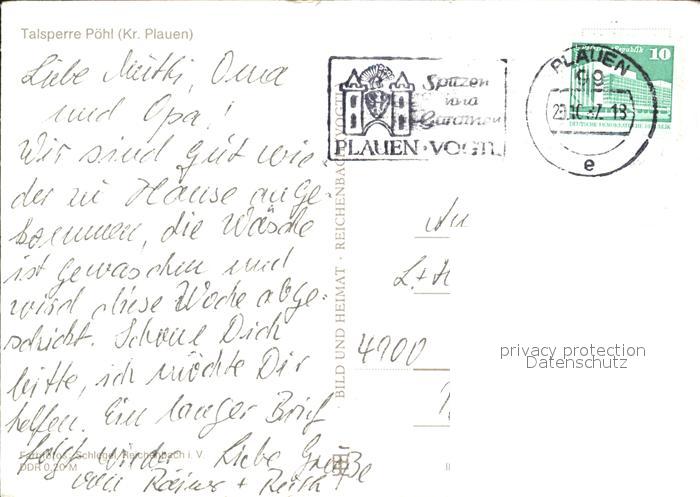 Talsperre Pöhl (Kr. Plauen)
Liebe Mutti, Oma
und Opa!
Wir sind gut wie-
der zu Hause ange-
kommen, die Wäsche
ist gewaschen und
wird diese Woche abge-
schickt. Schone Dich
bitte, ich möchte Dir
helfen. Ein langer Brief
folgt wieder. Liebe Grüße
von Rainer +
Farbfotos: Schlegel, Reichenbach i. V.
DDR 0,20 M
BILD UND HEIMAT · REICHENBACH VOGTL
Spitzen
und
Gardinen
PLAUEN · VOGTL
PLAUEN
99
87-18
e
10
DEUTSCHE DEMOKRATISCHE REPUBLIK
An
4900
privacy protection
Datenschutz